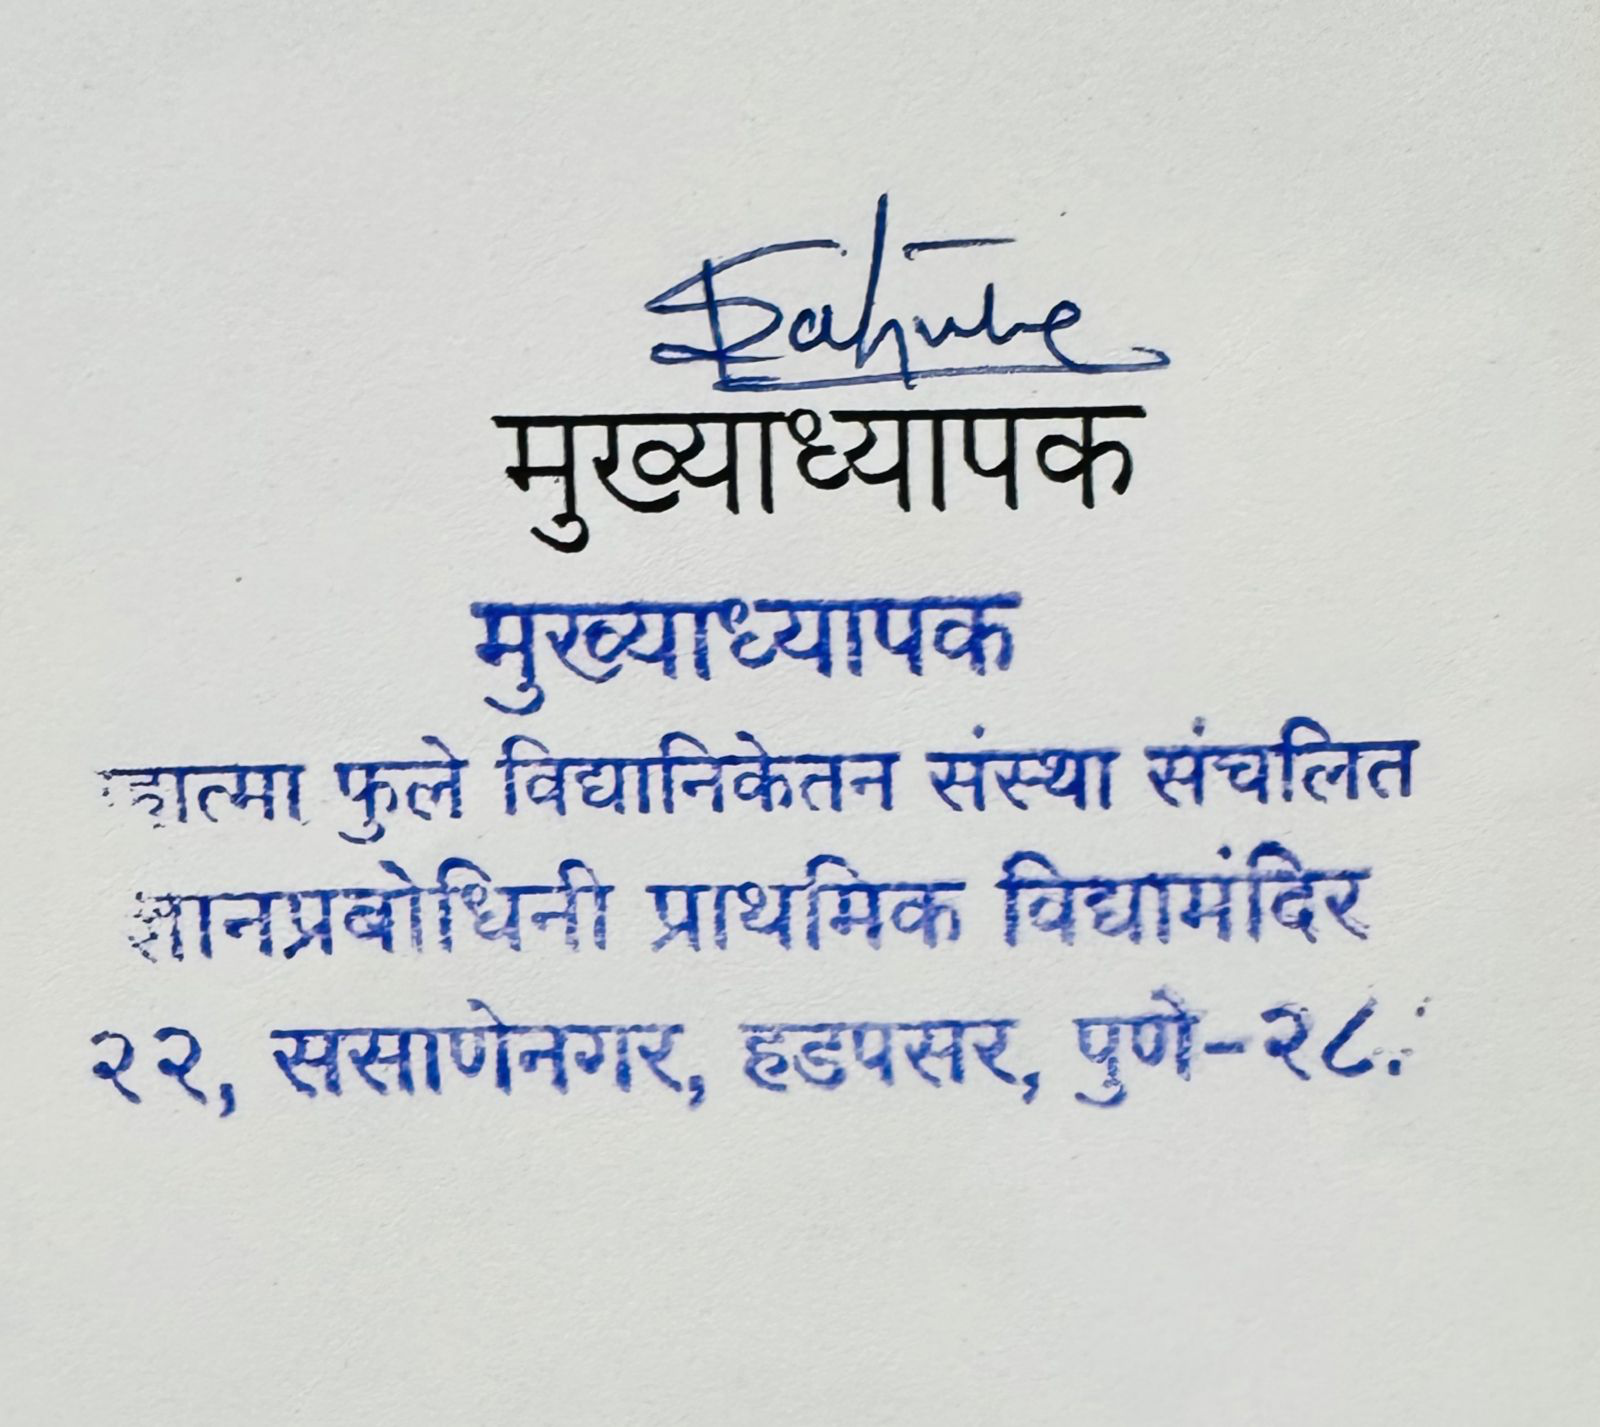 मुख्याध्यापक
मुख्याध्यापक
फुले विद्यानिकेतन संस्था संचलित
ज्ञानप्रबोधिनी प्राथमिक विद्यामंदिर
२२, ससाणेनगर, हडपसर, पुणे-२८.